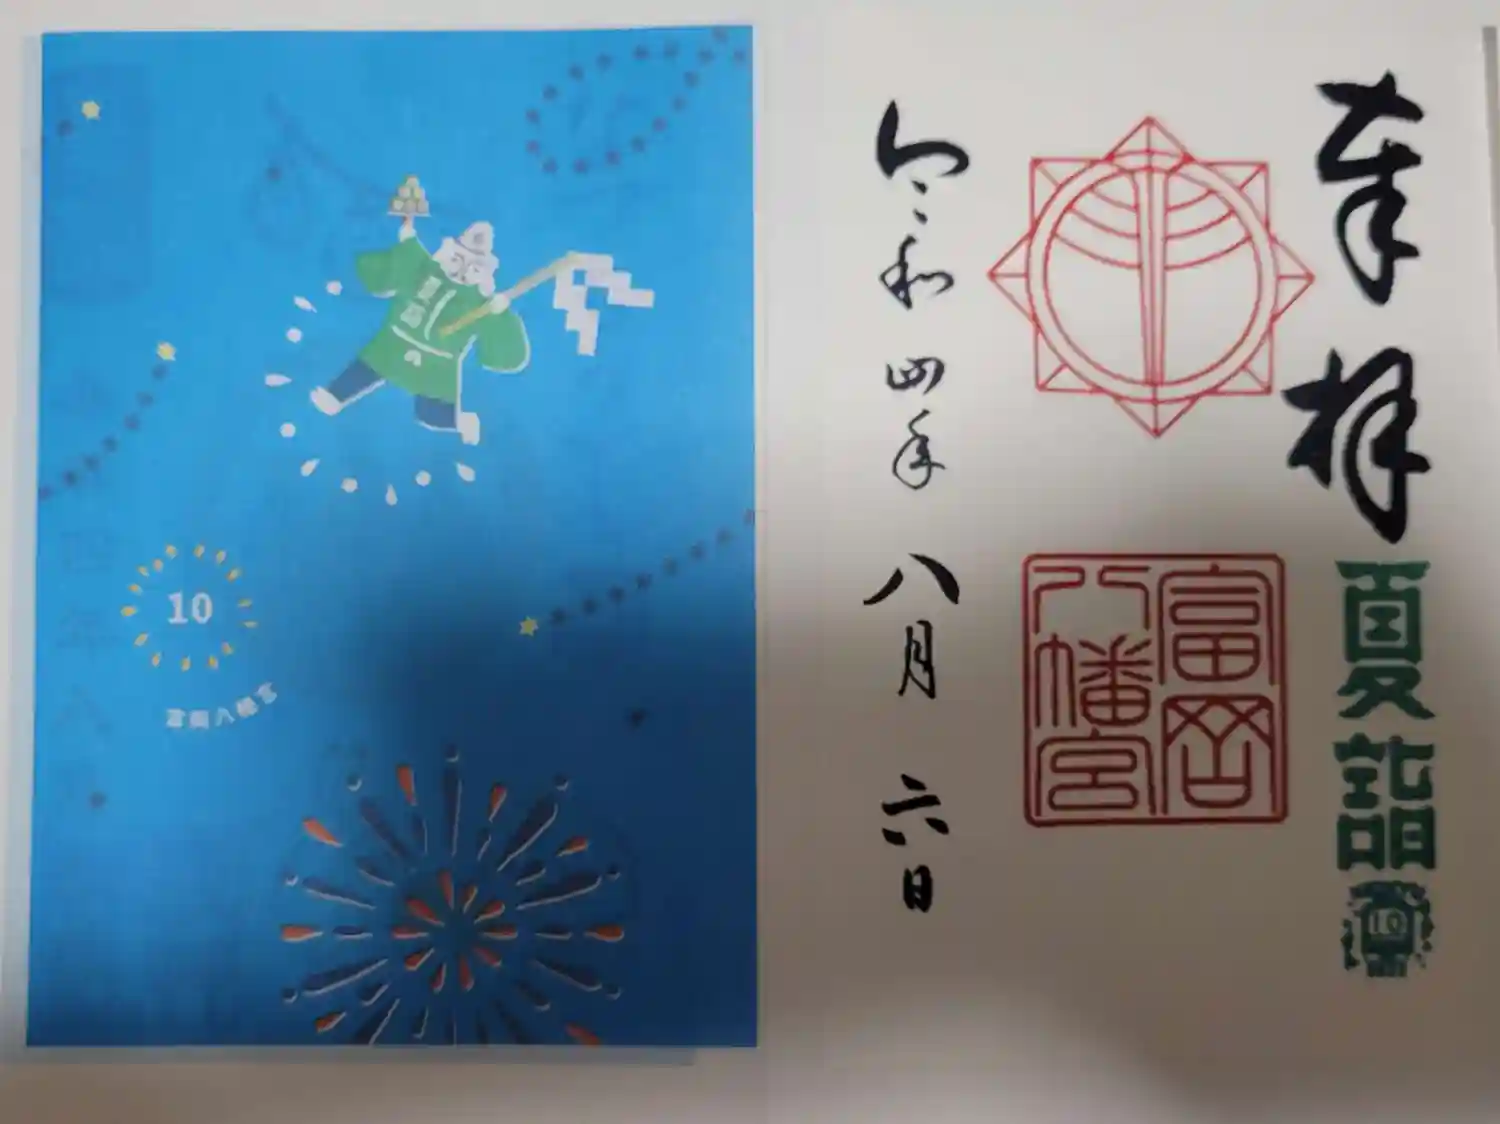 夏詣
10
富岡八幡宮
奉拝
夏詣
10
富岡八幡宮
令和四年八月六日